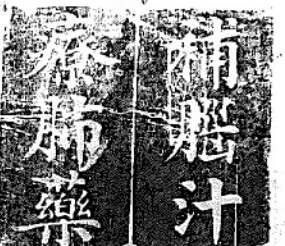 補腦汁
療肺藥